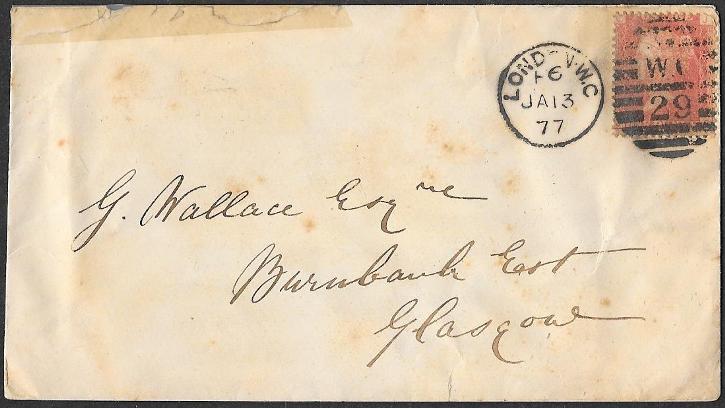 LONDON·W.C
F6
JA 13
77
W.C
29
G. Wallace Esqre
Burnbank East
Glasgow